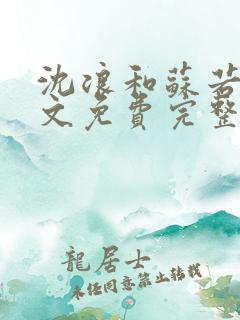 沈浪和蘇若
文免費完整
龍居士
未经同意禁止转载